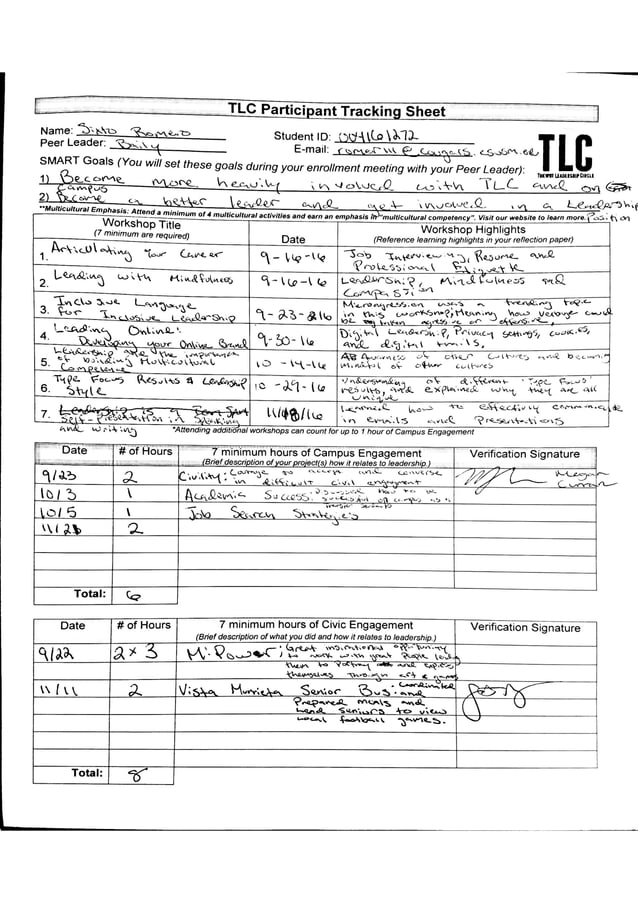 TLC Participant Tracking Sheet
Name: Romero Student ID: 004161272
Peer Leader: Baily E-mail: @cougars.csusm.edu
TLC
THE WAY LEADERSHIP CIRCLE
SMART Goals (You will set these goals during your enrollment meeting with your Peer Leader):
1) Become more heavily involved with TLC and on
campus
2) Become a better leader and get involved in a Leadership
**Multicultural Emphasis: Attend a minimum of 4 multicultural activities and earn an emphasis in "multicultural competency". Visit our website to learn more. Position
Workshop Title
(7 minimum are required)
Date
Workshop Highlights
(Reference learning highlights in your reflection paper)
1. Articulating Your Career 9-16-16 Job Interviewing, Resume and
Professional Etiquette
2. Leading with Mindfulness 9-16-16 Leadership, Mindfulness and
Compassion
3. Inclusive Language
For Inclusive Leadership 9-23-16 Microagression was a trending topic
in this workshop, Meaning how could
be taken agressive or offensive,
4. Leading Online:
Developing your Online Brand 9-30-16 Digital Leadership, Privacy settings, cookies,
and digital
5. Leadership and the importance
of building Multicultural
Competence 10-14-16 Awareness of other cultures and becoming
mindful of other cultures
6. Type Focus Results & Leadership
Style 10-29-16 Understanding of different 'Type Focus'
results, and explained why they are all
unique
7. Leadership is a
Self-Presentation: Speaking
and writing 11/18/16 Learned how to effectively communicate
in emails and Presentations
*Attending additional workshops can count for up to 1 hour of Campus Engagement
Date # of Hours 7 minimum hours of Campus Engagement
(Brief description of your project(s) how it relates to leadership.)
Verification Signature
9/23 2 Civility: to accept and converse
in difficult civil engagement Megan
Curran
10/3 1 Academic Success: how to be
successful on campus as a
transfer
10/5 1 Job Search Strategies
11/28 2
Total: 6
Date # of Hours 7 minimum hours of Civic Engagement
(Brief description of what you did and how it relates to leadership.)
Verification Signature
9/22 2x3 M:Power; Great inspirational opportunity
to work with great people
them to Portray and express
themselves through art & games
11/11 2 Vista Murrieta Senior Bus: Coordinated
and
Prepared meals and
seniors to view
local football games.
Total: 8